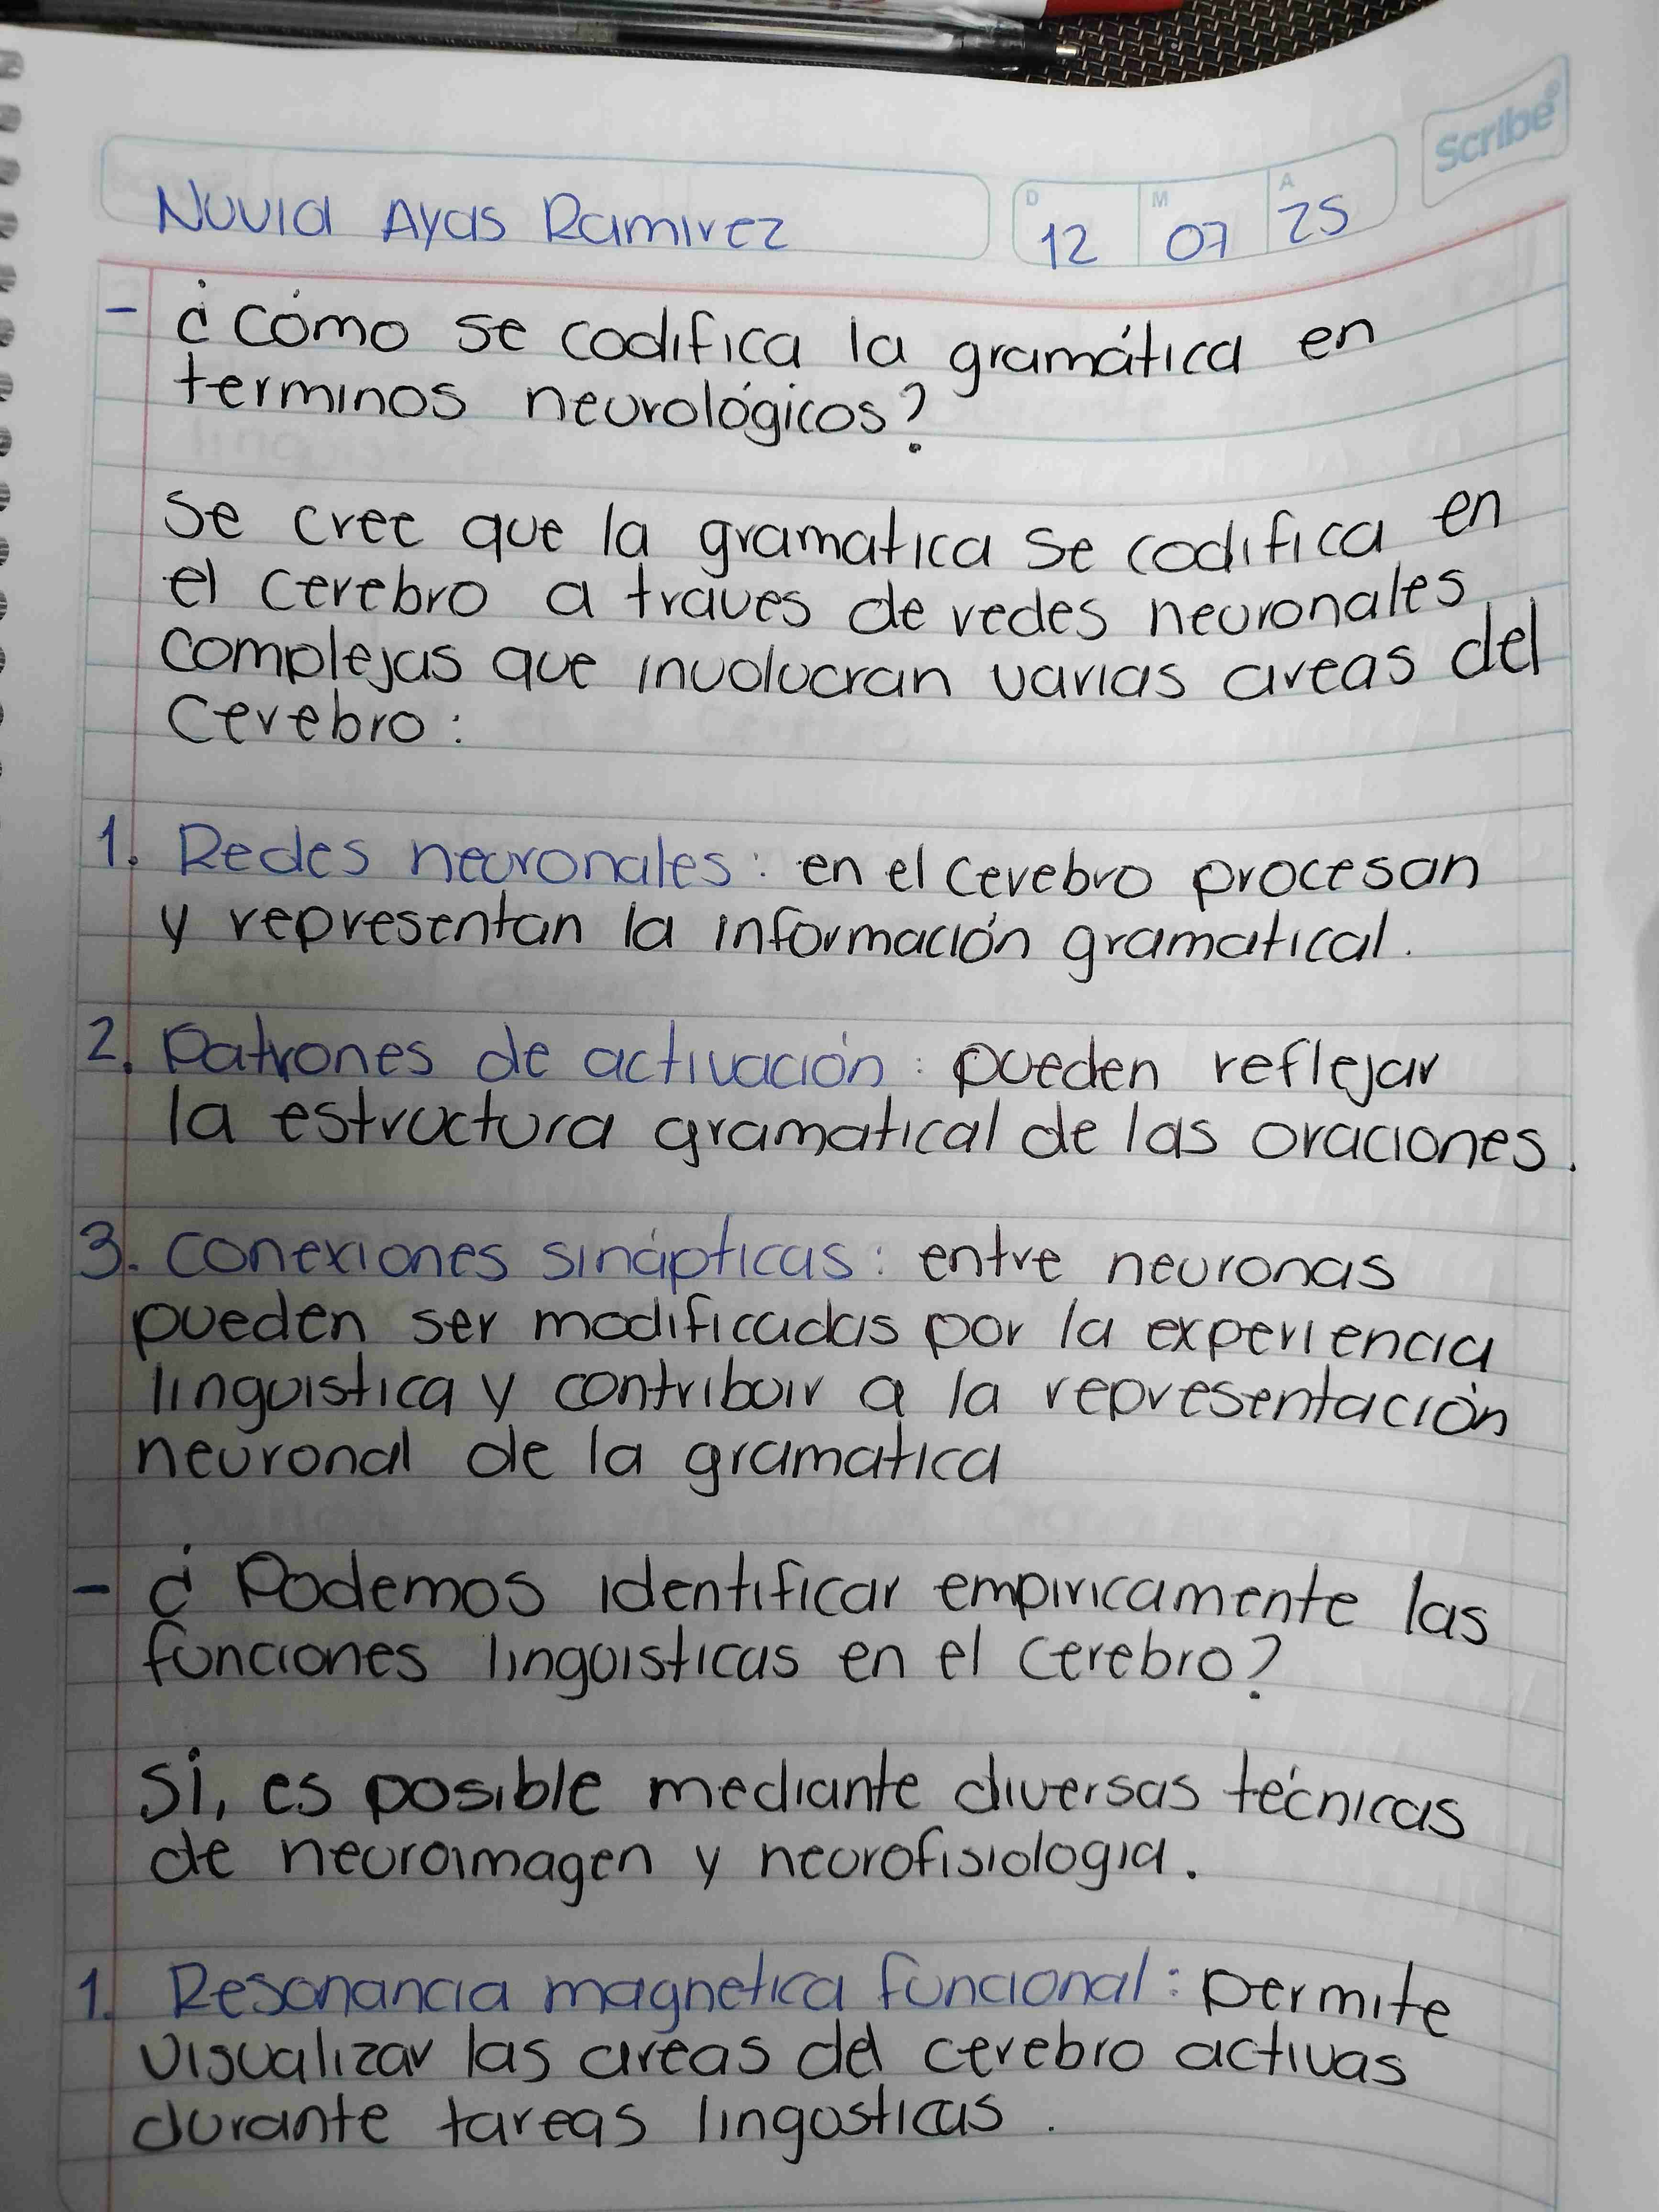 Scribe®
Nuvia Ayas Ramirez
D 12 M 07 A 25
- ¿Cómo se codifica la gramática en
terminos neurológicos?
Se cree que la gramatica se codifica en
el cerebro a traves de redes neuronales
complejas que involucran varias areas del
cerebro:
1. Redes neuronales: en el cerebro procesan
y representan la información gramatical.
2. Patrones de activación: pueden reflejar
la estructura gramatical de las oraciones.
3. conexiones sinápticas: entre neuronas
pueden ser modificadas por la experiencia
linguistica y contribuir a la representación
neuronal de la gramatica
- ¿Podemos identificar empiricamente las
funciones linguisticas en el cerebro?
Si, es posible mediante diversas técnicas
de neuroimagen y neurofisiologia.
1. Resonancia magnetica funcional: permite
visualizar las areas del cerebro activas
durante tareas lingusticas.